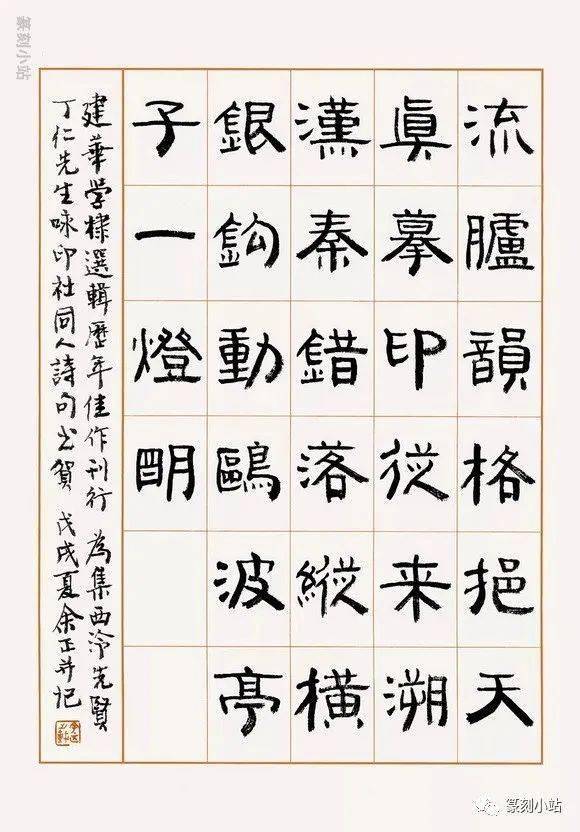 篆刻小站
流臚韻格挹天
眞摹印從来溯
漢秦錯落縱橫
銀鉤動鷗波亭
子一燈明
建華学棣選輯歷年佳作刊行 為集西泠先賢
丁仁先生咏印社同人詩句书賀 戊戌夏余正并记
篆刻小站